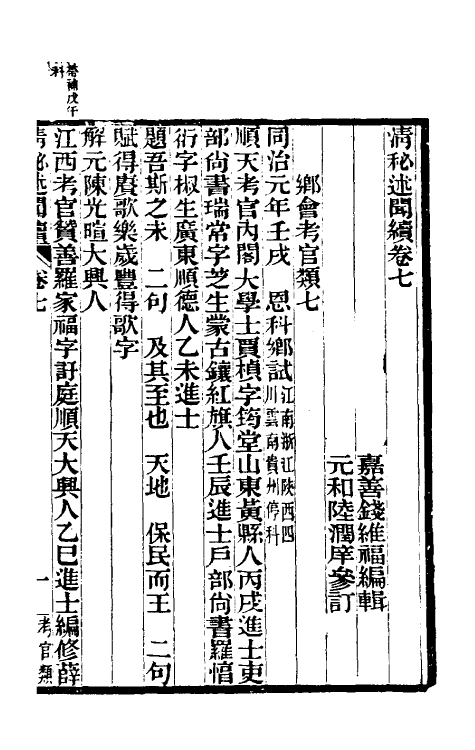 清秘述聞續卷七
嘉善錢維福編輯
元和陸潤庠參訂
鄉會考官類七
同治元年壬戌　恩科鄉試江南浙江陝西四川雲南貴州停科
順天考官內閣大學士賈楨字筠堂山東黃縣人丙戌進士吏
部尚書瑞常字芝生蒙古鑲紅旗人壬辰進士戶部尚書羅惇
衍字椒生廣東順德人乙未進士
題吾斯之未　二句　及其至也　天地　保民而王　二句
賦得賡歌樂歲豐得歌字
解元陳光暄大興人
江西考官贊善羅家福字訏庭順天大興人乙巳進士編修薛
清秘述聞續　卷七　一　考官類
帶補戊午科